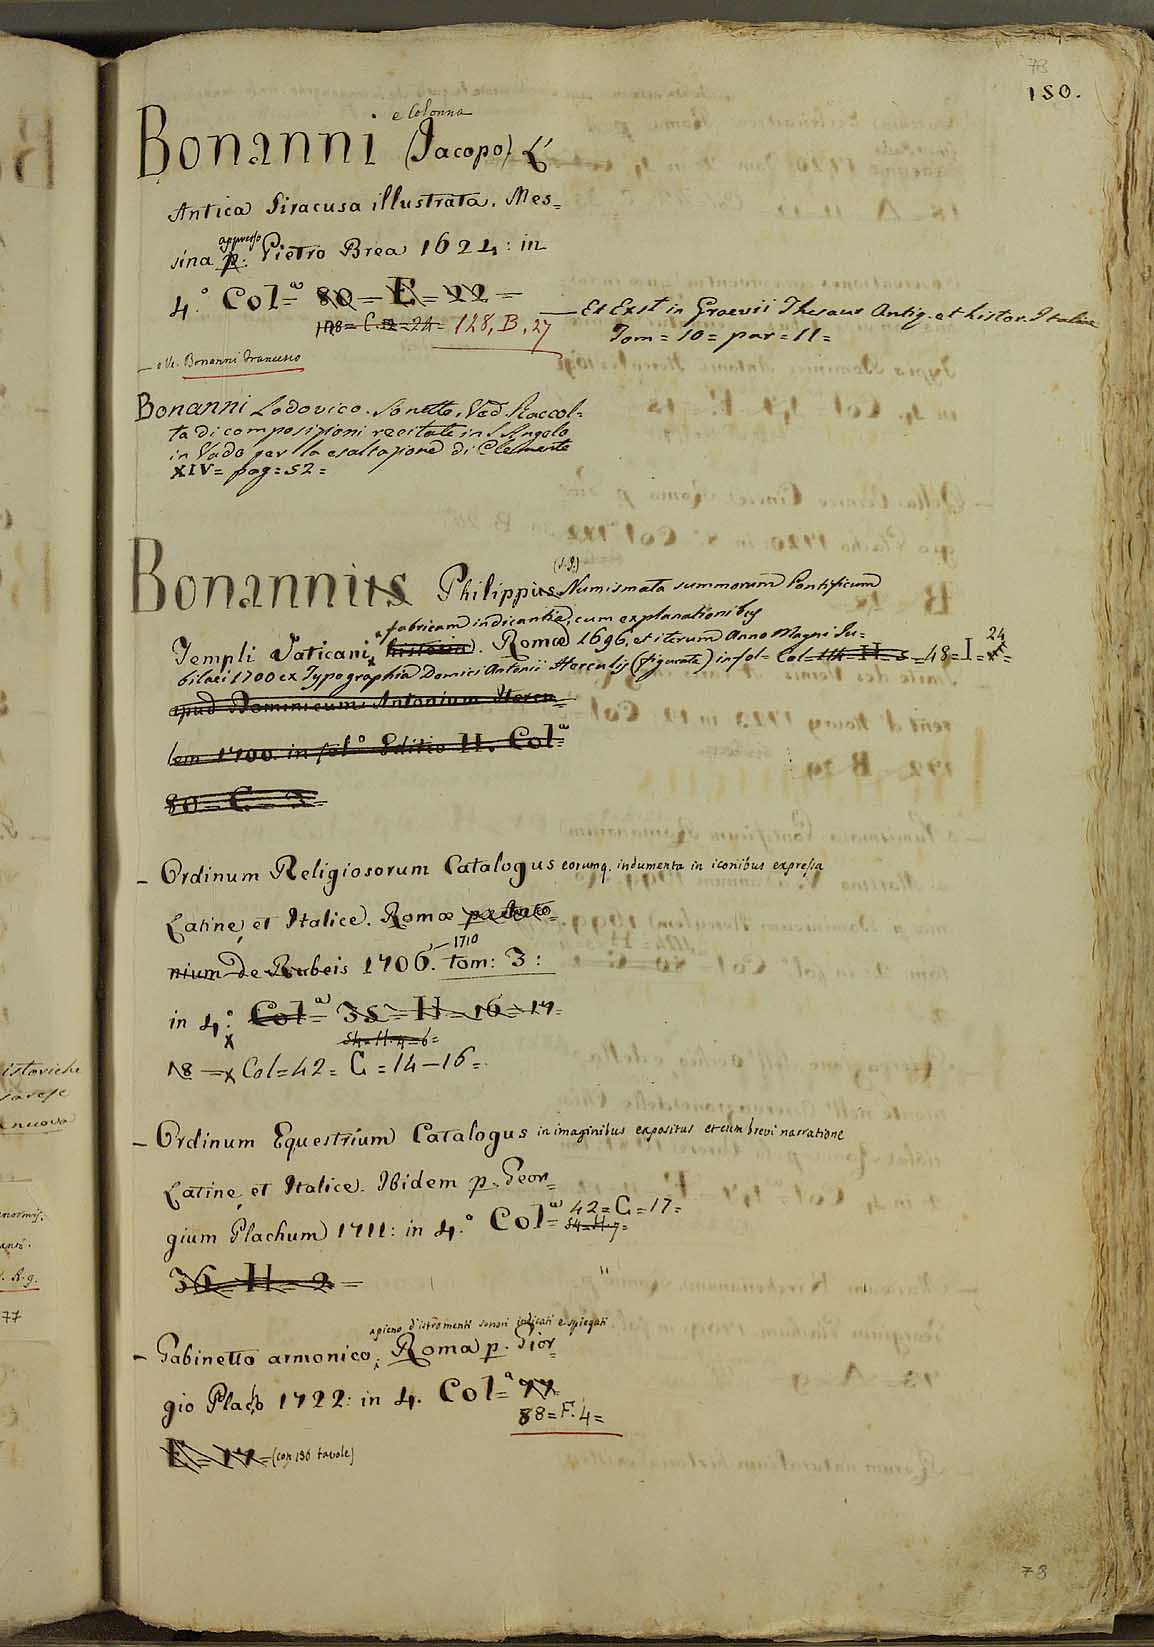 78
180.
e Colonna
Bonanni (Jacopo) L'
Antica Siracusa illustrata. Mes=
appresso
sina p. Pietro Brea 1624: in
4.° Col=a 80=E=22=
128=C.=24= 128, B, 27
Et Exst in Graevii Thesaur Antiq. et histor. Italiae
Tom=10=par=11=
— Ve. Bonanni Francesco
Bonanni Lodovico. Sonetto. Ved. Raccol=
ta di composizioni recitate in S. Angelo
in Vado per la esaltazione di Clemente
XIV= pag=52=
(S.J.)
Bonannius Philippus Numismata summorum Pontificum
fabricam indicantia, cum explanationibus
Templi Vaticani historia. Romæ 1696. et iterum Anno Magni Ju=
bilæi 1700 ex Typographia Domici Antonii Herculis (figurato) in fol= Col=114=H=5=48=I= 24
apud Dominicum Antonium Hercu
lem 1700. in fol.° Editio II. Col=a
80=C=3=
– Ordinum Religiosorum Catalogus eorumq. indumenta in iconibus expressa
Latine, et Italice. Romæ p. Anto=
nium de Rubeis 1706. —1710 tom: 3:
in 4.° Col=a 35=H=16=17=
54=H.4=6=
18 — x Col=42= C =14—16=
– Ordinum Equestrium Catalogus in imaginibus expositus et cum brevi narratione
Latine, et Italice. Ibidem p. Geor=
gium Plachum 1711: in 4.° Col=a 42=C=17=
54=H.7=
36=H=2=
apieno d'istromenti sonori indicati e spiegati
– Gabinetto armonico, Roma p. Gior=
gio Placho 1722: in 4. Col=a 77
88=F.4=
E=17= (con 136 tavole)
78
istoriche
nuova
77